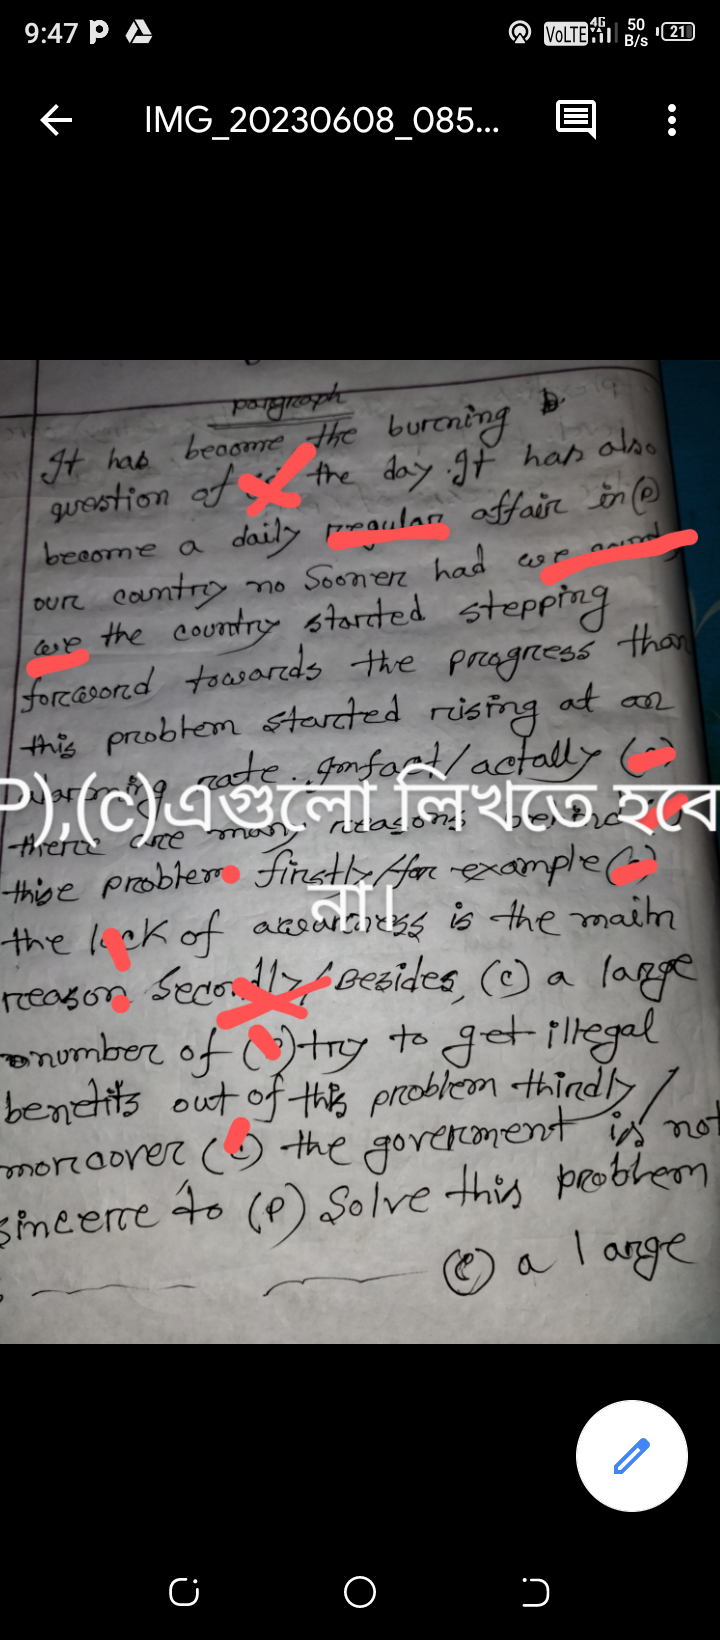 9:47
VoLTE 4G 50 B/s 21
IMG_20230608_085...
paragraph
It has become the burcning
question of the day. It has also
become a daily regular affair in (P)
our country no Sooner had we
we the country started stepping
forword towards the progress than
this problem started rising at an
rate. Infact/actally
there are many reasons behind
P),(c)এগুলো লিখতে হবে
this problem firstly/for example
না।
the lack of awearness is the main
reason Secondly/Besides, (c) a large
number of try to get illegal
benefits out of this problem thirdly/
moreover (c) the goverment is not
sincere to (P) Solve this problem
(c) a large